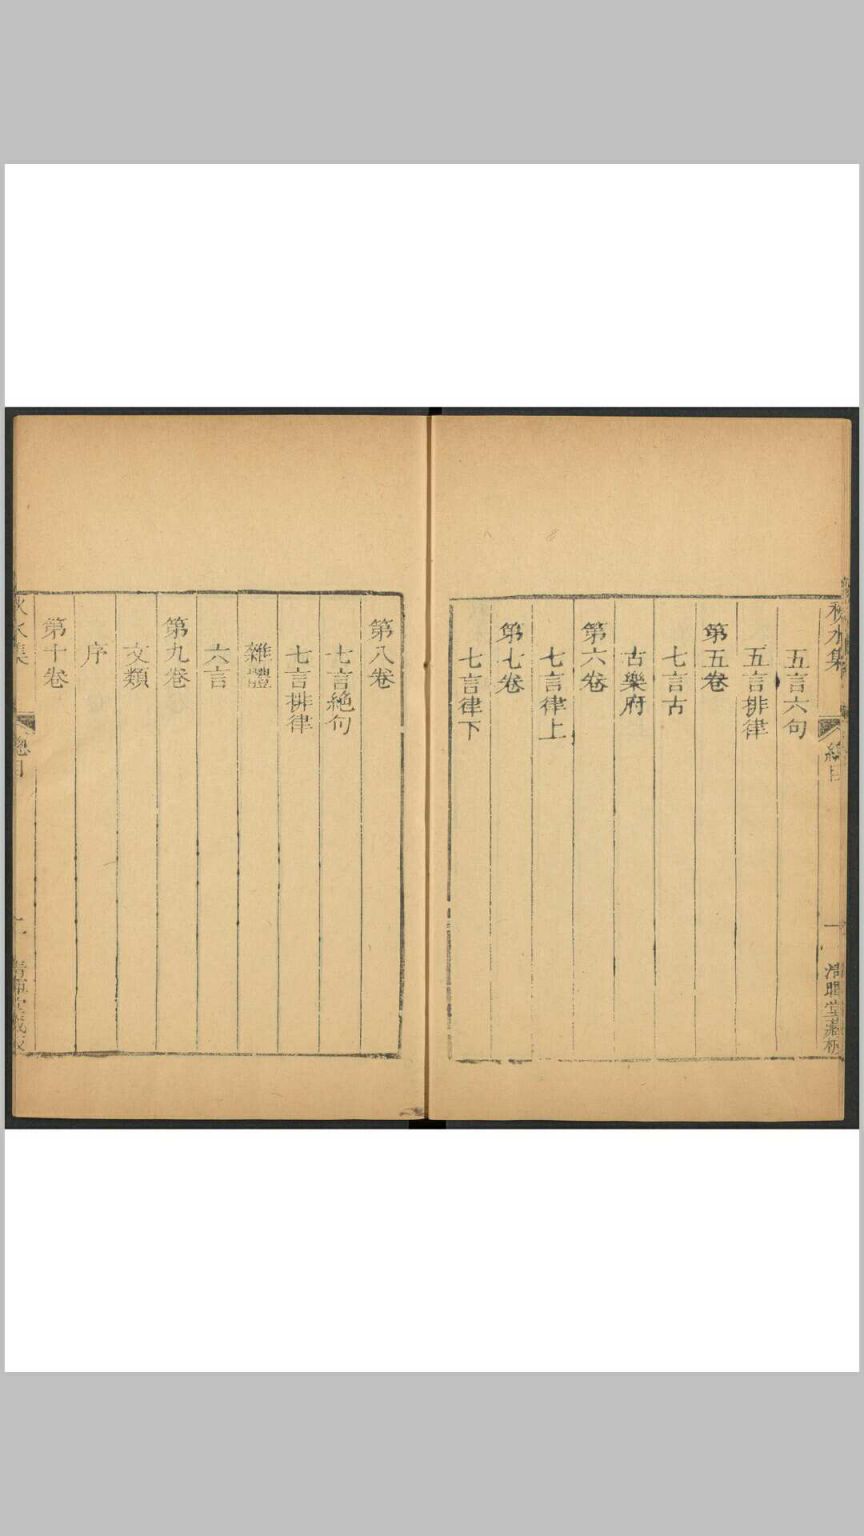 秋水集
總目
一
五言六句
五言排律
第五卷
七言古
古樂府
第六卷
七言律上
第七卷
七言律下
第八卷
七言絶句
七言排律
雜體
六言
第九卷
文類
序
第十卷
水集
總目